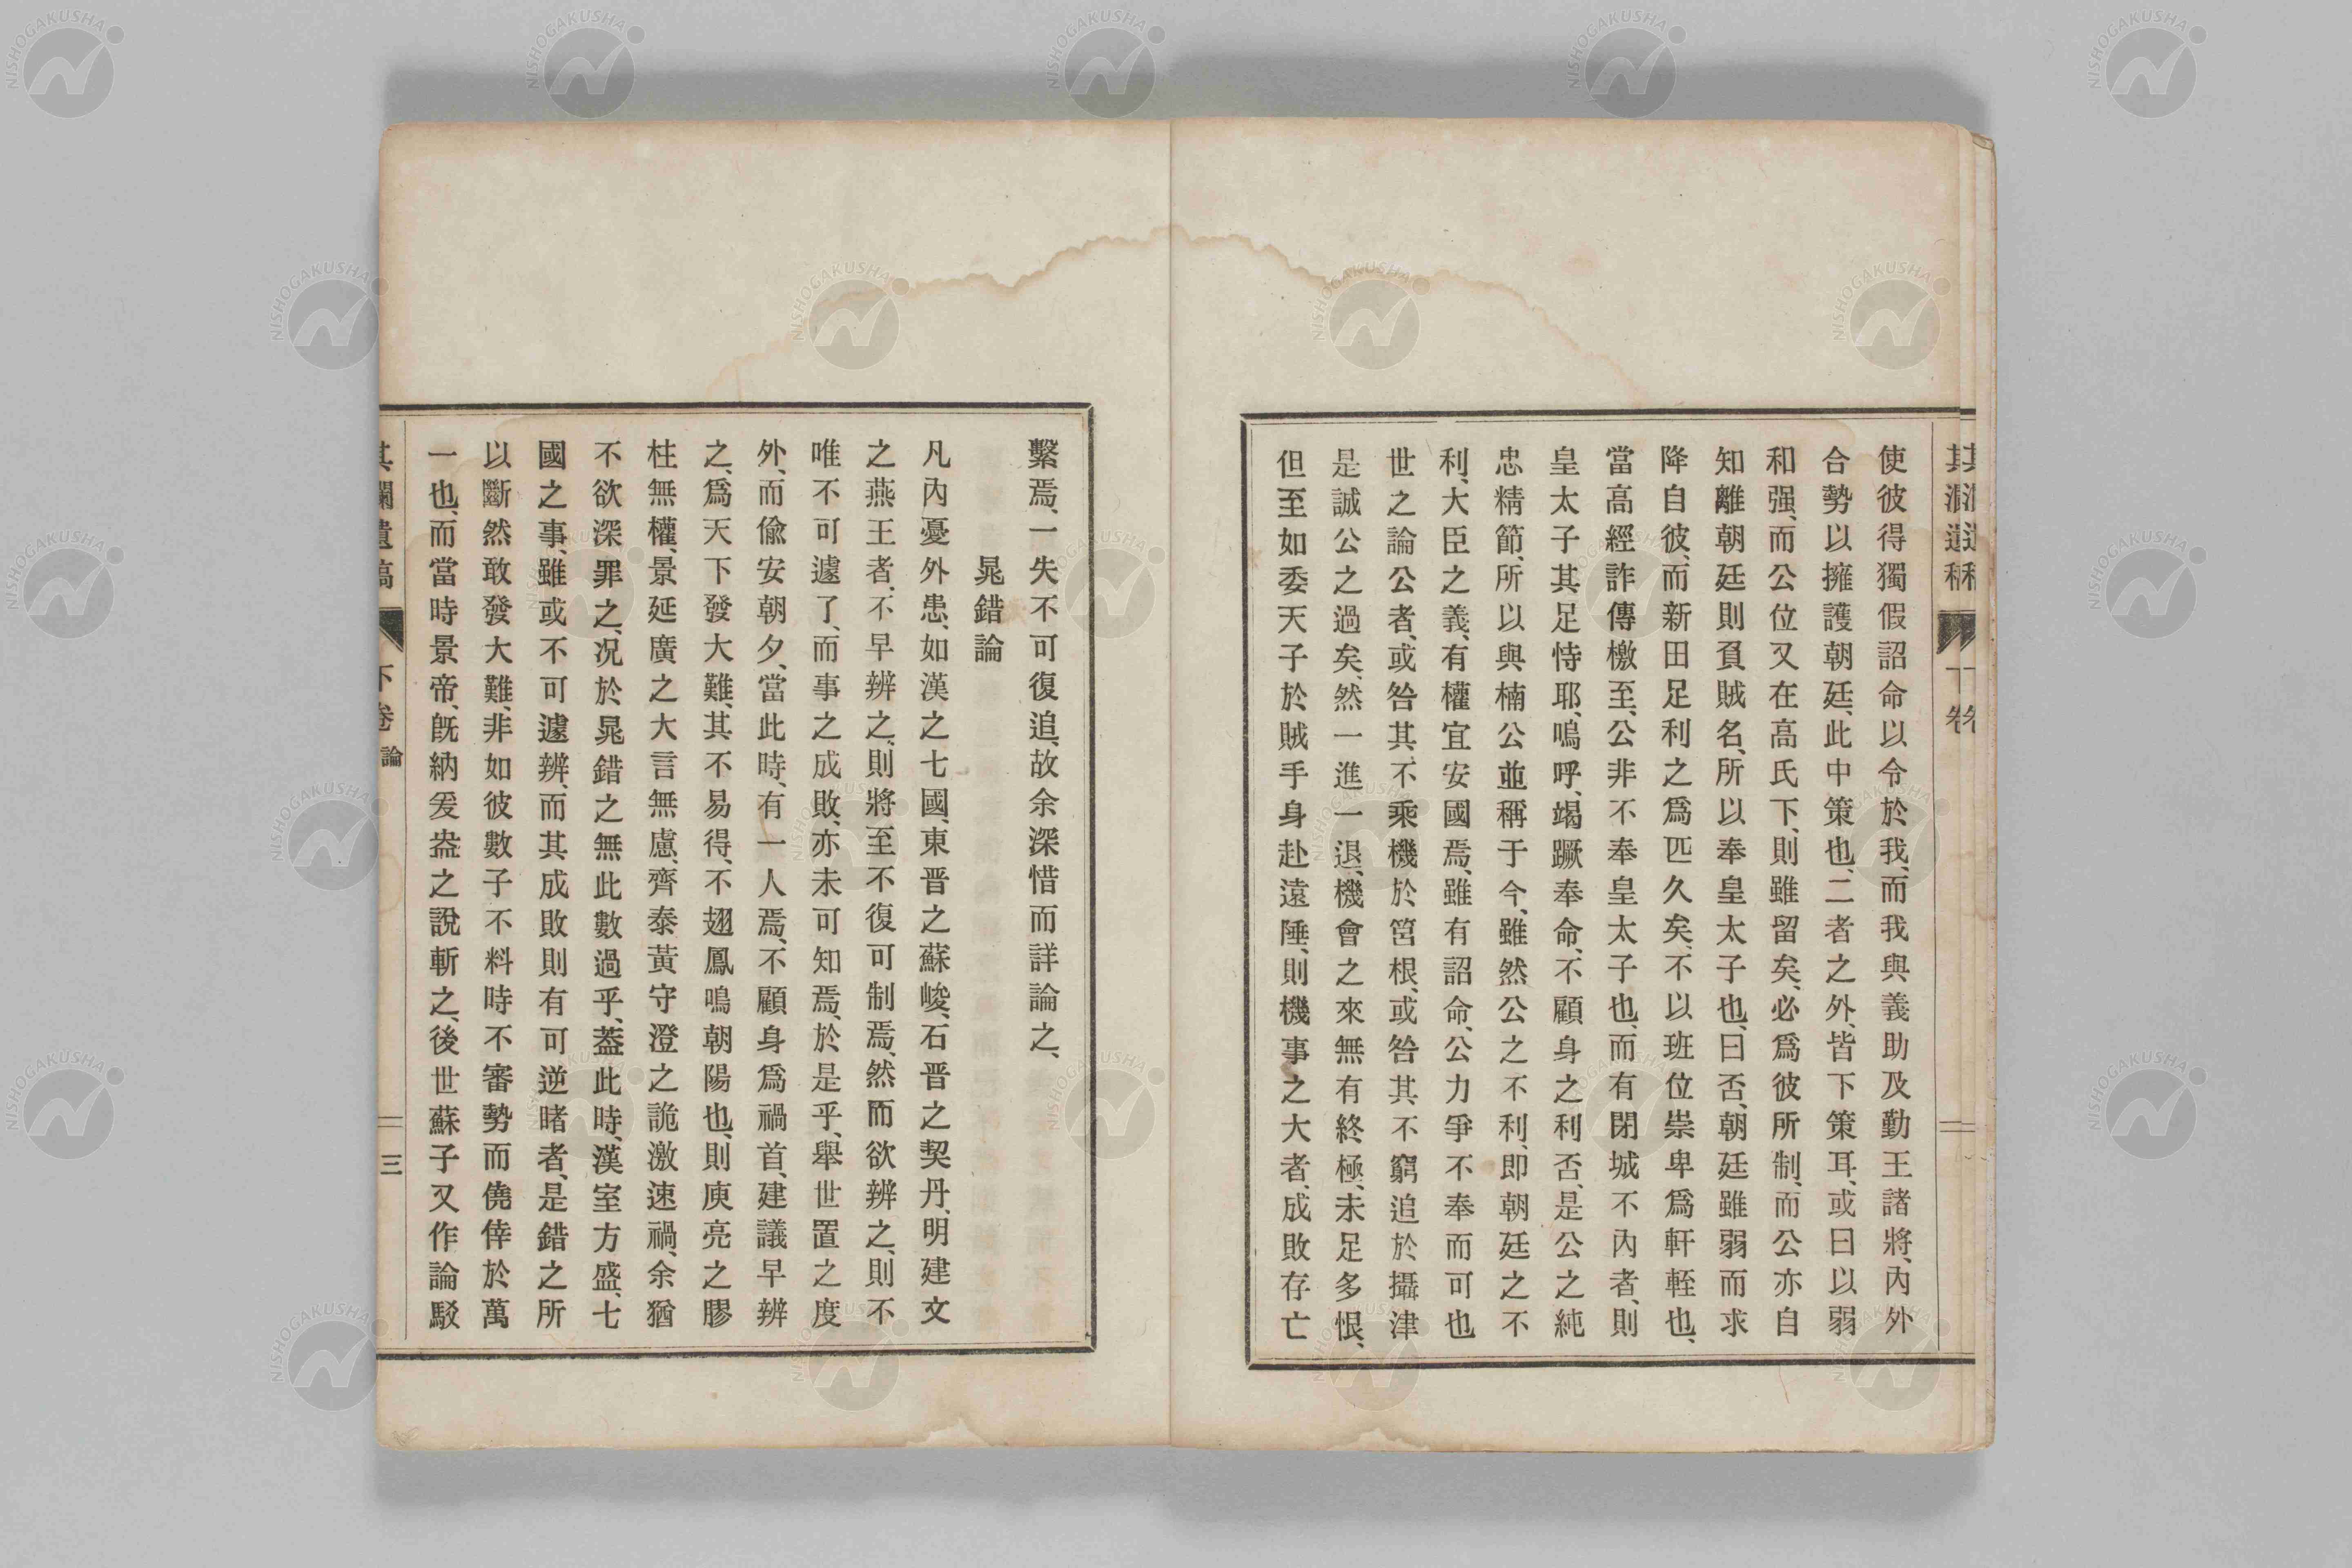 使彼得獨假詔命以令於我、而我與義助及勤王諸將、內外
合勢以擁護朝廷、此中策也、二者之外、皆下策耳、或曰以弱
和强、而公位又在高氏下、則雖留矣、必爲彼所制、而公亦自
知離朝廷則負賊名、所以奉皇太子也、曰否、朝廷雖弱而求
降自彼、而新田足利之爲匹久矣、不以班位崇卑爲軒輊也、
當高經詐傳檄至、公非不奉皇太子也、而有閉城不內者、則
皇太子其足恃耶、嗚呼、竭蹶奉命、不顧身之利否、是公之純
忠精節、所以與楠公並稱于今、雖然公之不利、即朝廷之不
利、大臣之義、有權宜安國焉、雖有詔命、公力爭不奉而可也
世之論公者、或咎其不乘機於筥根、或咎其不窮追於攝津
是誠公之過矣、然一進一退、機會之來無有終極、未足多恨、
但至如委天子於賊手身赴遠陲、則機事之大者、成敗存亡
繫焉、一失不可復追、故余深惜而詳論之、
晁錯論
凡內憂外患、如漢之七國、東晋之蘇峻、石晋之契丹、明建文
之燕王者、不早辨之、則將至不復可制焉、然而欲辨之、則不
唯不可遽了、而事之成敗、亦未可知焉、於是乎、舉世置之度
外、而偸安朝夕、當此時、有一人焉、不顧身爲禍首、建議早辨
之、爲天下發大難、其不易得、不翅鳳鳴朝陽也、則庾亮之膠
柱無權、景延廣之大言無慮、齊泰黃守澄之詭激速禍、余猶
不欲深罪之、况於晁錯之無此數過乎、葢此時、漢室方盛、七
國之事、雖或不可遽辨、而其成敗則有可逆睹者、是錯之所
以斷然敢發大難、非如彼數子不料時不審勢而僥倖於萬
一也、而當時景帝、旣納爰盎之說斬之、後世蘇子又作論駁
下卷
論
三
NISHOGAKUSHA